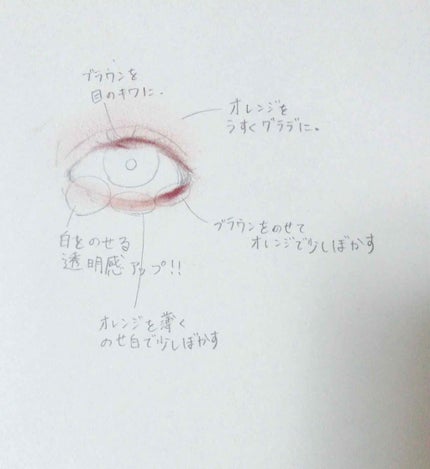 ブラウンを
目のキワに.
オレンジを
うすくグラデに。
ブラウンをのせて
オレンジで少しぼかす
白をのせる
透明感アップ!!
オレンジを薄く
のせ白で少しぼかす